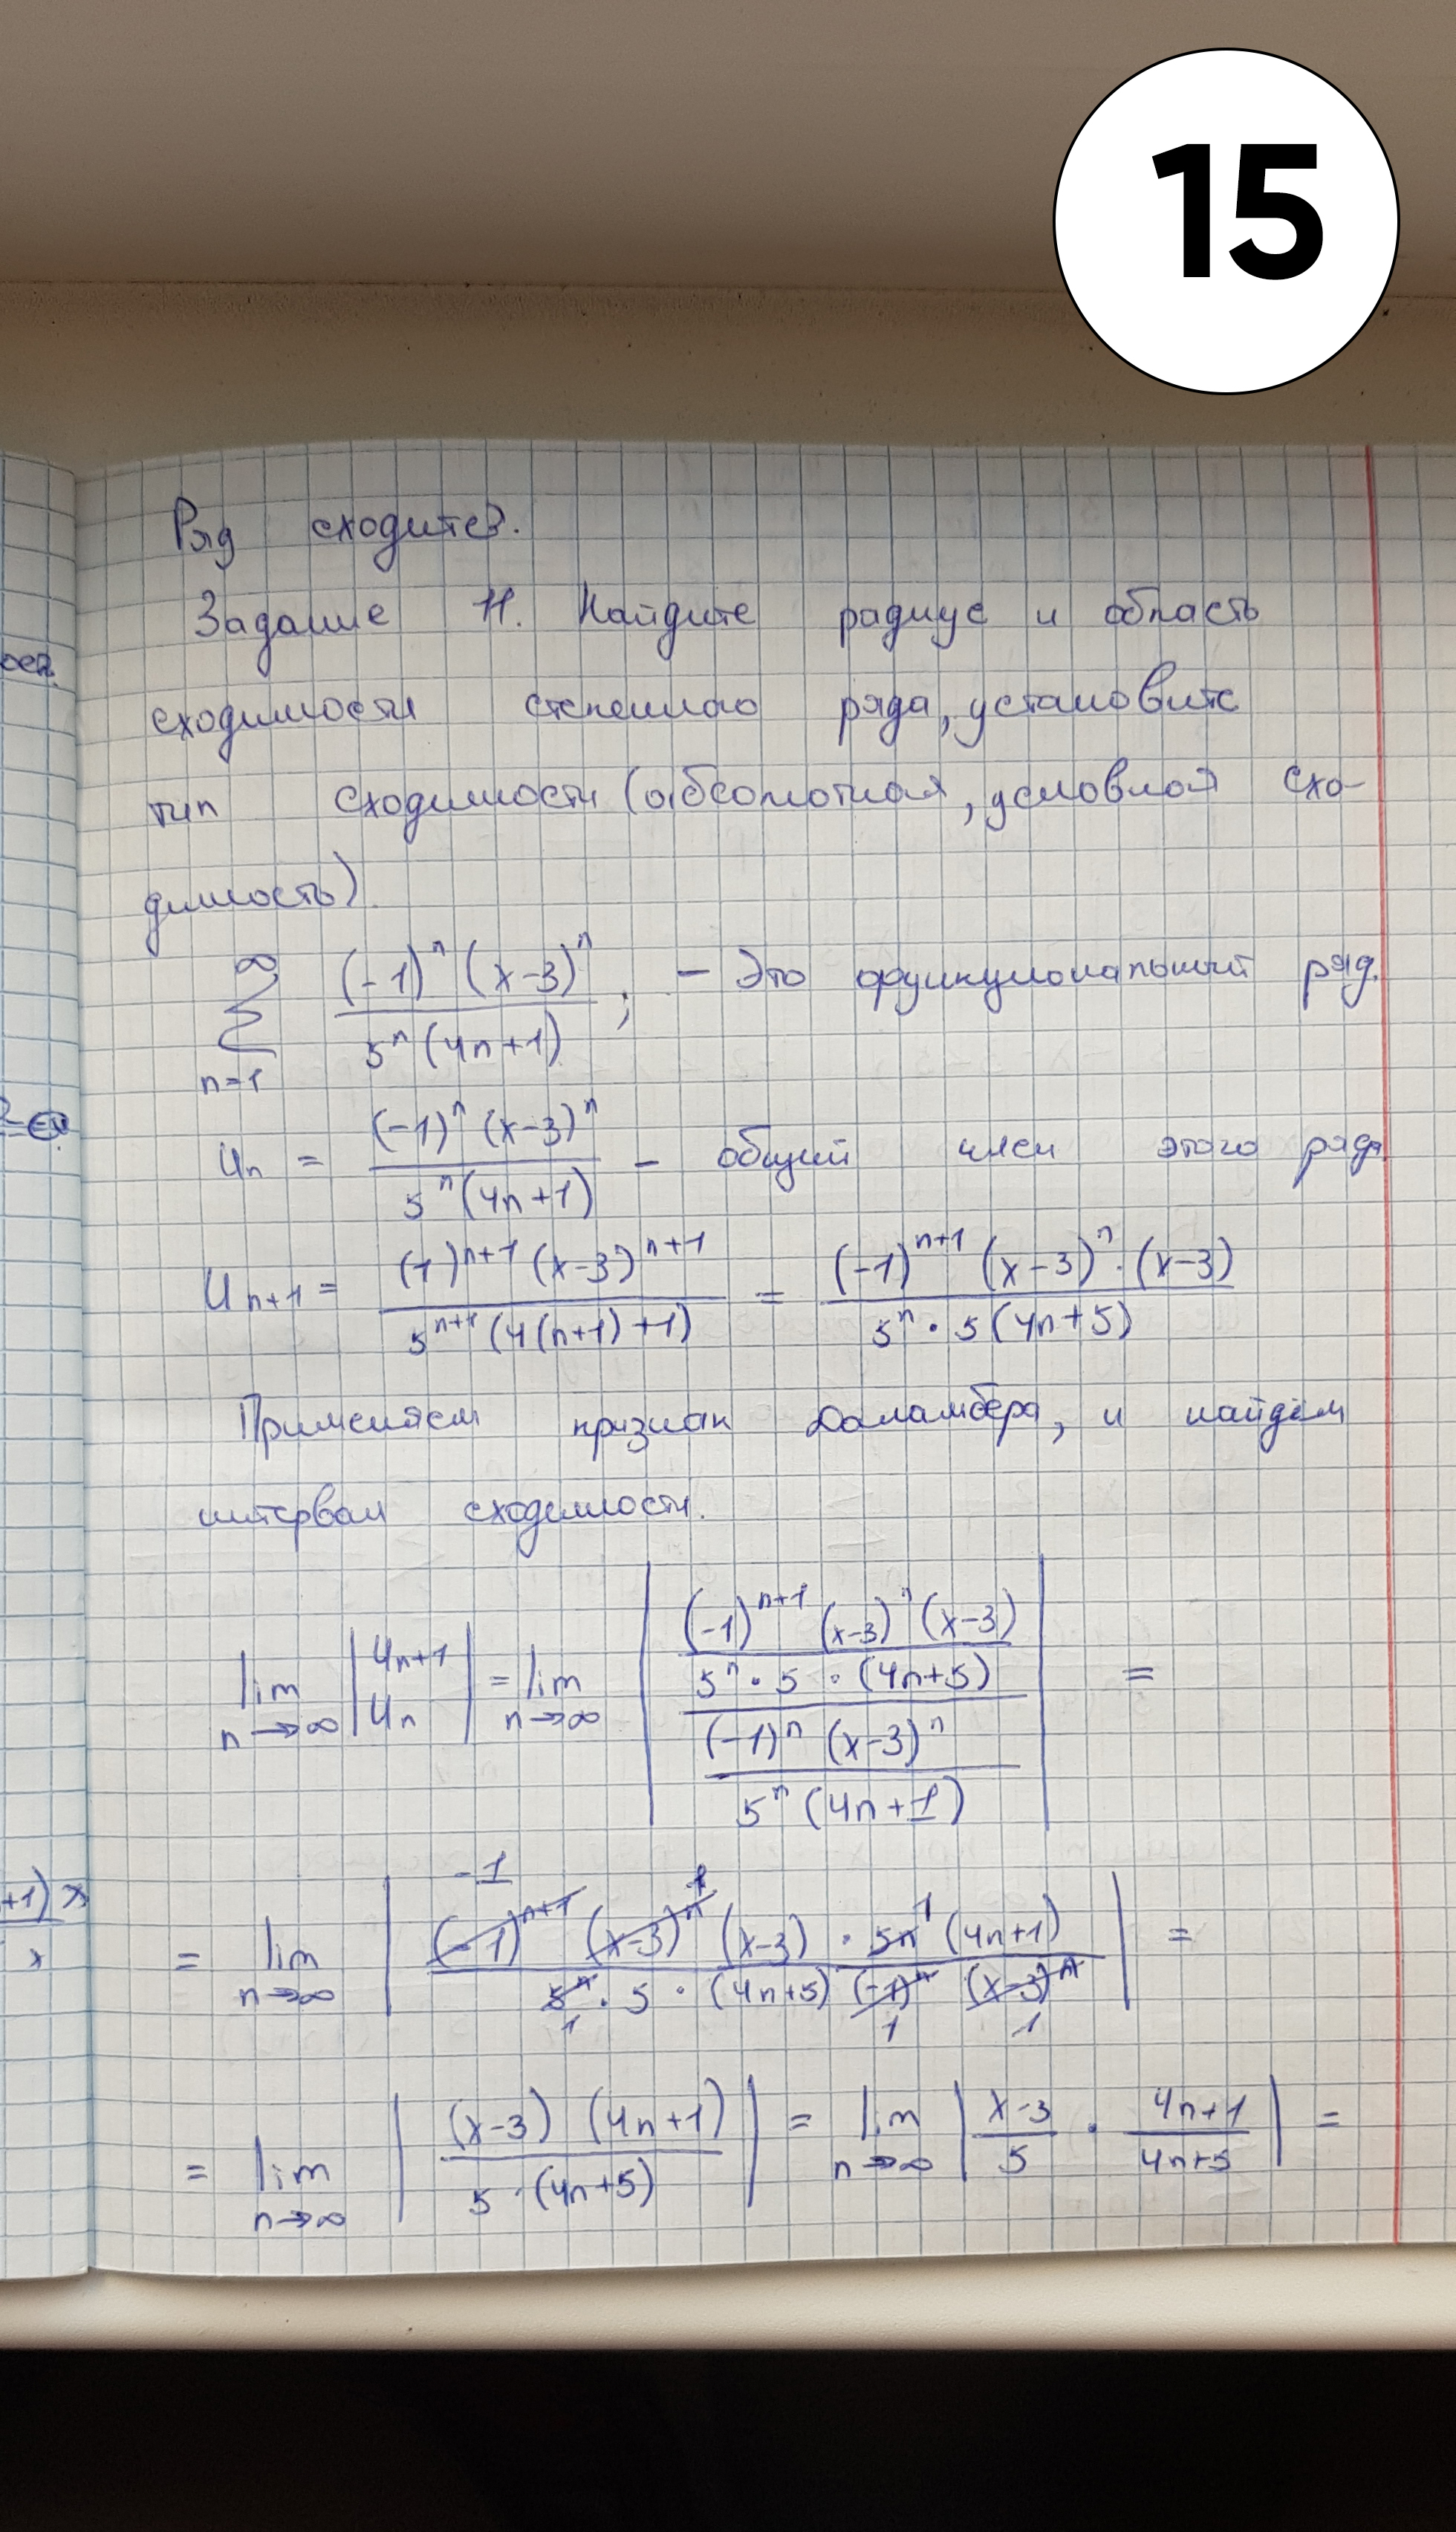 15
Ряд сходится.
Задание 11. Найдите радиус и область
сходимости степенного ряда, установите
тип сходимости (абсолютная, условная схо-
димость).
∑_{n=1}^{∞} ((-1)^n (x-3)^n)/(5^n (4n+1)); – Это функциональный ряд.
U_n = ((-1)^n (x-3)^n)/(5^n (4n+1)) – общий член этого ряда
U_{n+1} = ((-1)^{n+1} (x-3)^{n+1})/(5^{n+1} (4(n+1)+1)) = ((-1)^{n+1} (x-3)^n · (x-3))/(5^n · 5 (4n+5))
Применяем признак Даламбера, и найдём
интервал сходимости.
lim_{n→∞} |U_{n+1}/U_n| = lim_{n→∞} |(((-1)^{n+1} (x-3)^n (x-3))/(5^n · 5 · (4n+5)))/(((-1)^n (x-3)^n)/(5^n (4n+1)))| =
= lim_{n→∞} |((-1)^{n+1} (x-3)^n (x-3) · 5^n (4n+1))/(5^n · 5 · (4n+5) (-1)^n (x-3)^n)| =
= lim_{n→∞} |((x-3) (4n+1))/(5 · (4n+5))| = lim_{n→∞} |(x-3)/5 · (4n+1)/(4n+5)| =